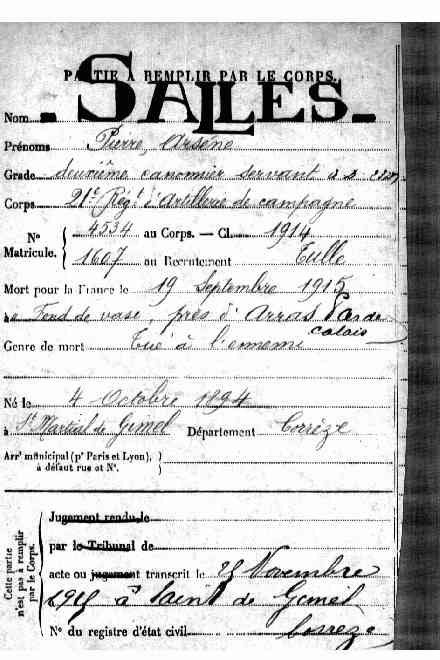 PARTIE À REMPLIR PAR LE CORPS.
Nom SALLES
Prénoms Pierre, Arsène
Grade deuxième canonnier servant
Corps 21e Régt d'Artillerie de campagne
No Matricule. { 4534 au Corps. — Cl. 1914
1607 au Recrutement Tulle
Mort pour la France le 19 Septembre 1915
Fond de vase, près d'Arras Pas de
Calais
Genre de mort Tué à l'ennemi
Né le 4 Octobre 1894
à St Martial de Gimel Département Corrèze
Arrt municipal (pr Paris et Lyon),
à défaut rue et No.
Cette partie n'est pas à remplir par le Corps.
Jugement rendu le
par le Tribunal de
acte ou jugement transcrit le Novembre
1915 à de Gimel
No du registre d'état civil
Corrèze